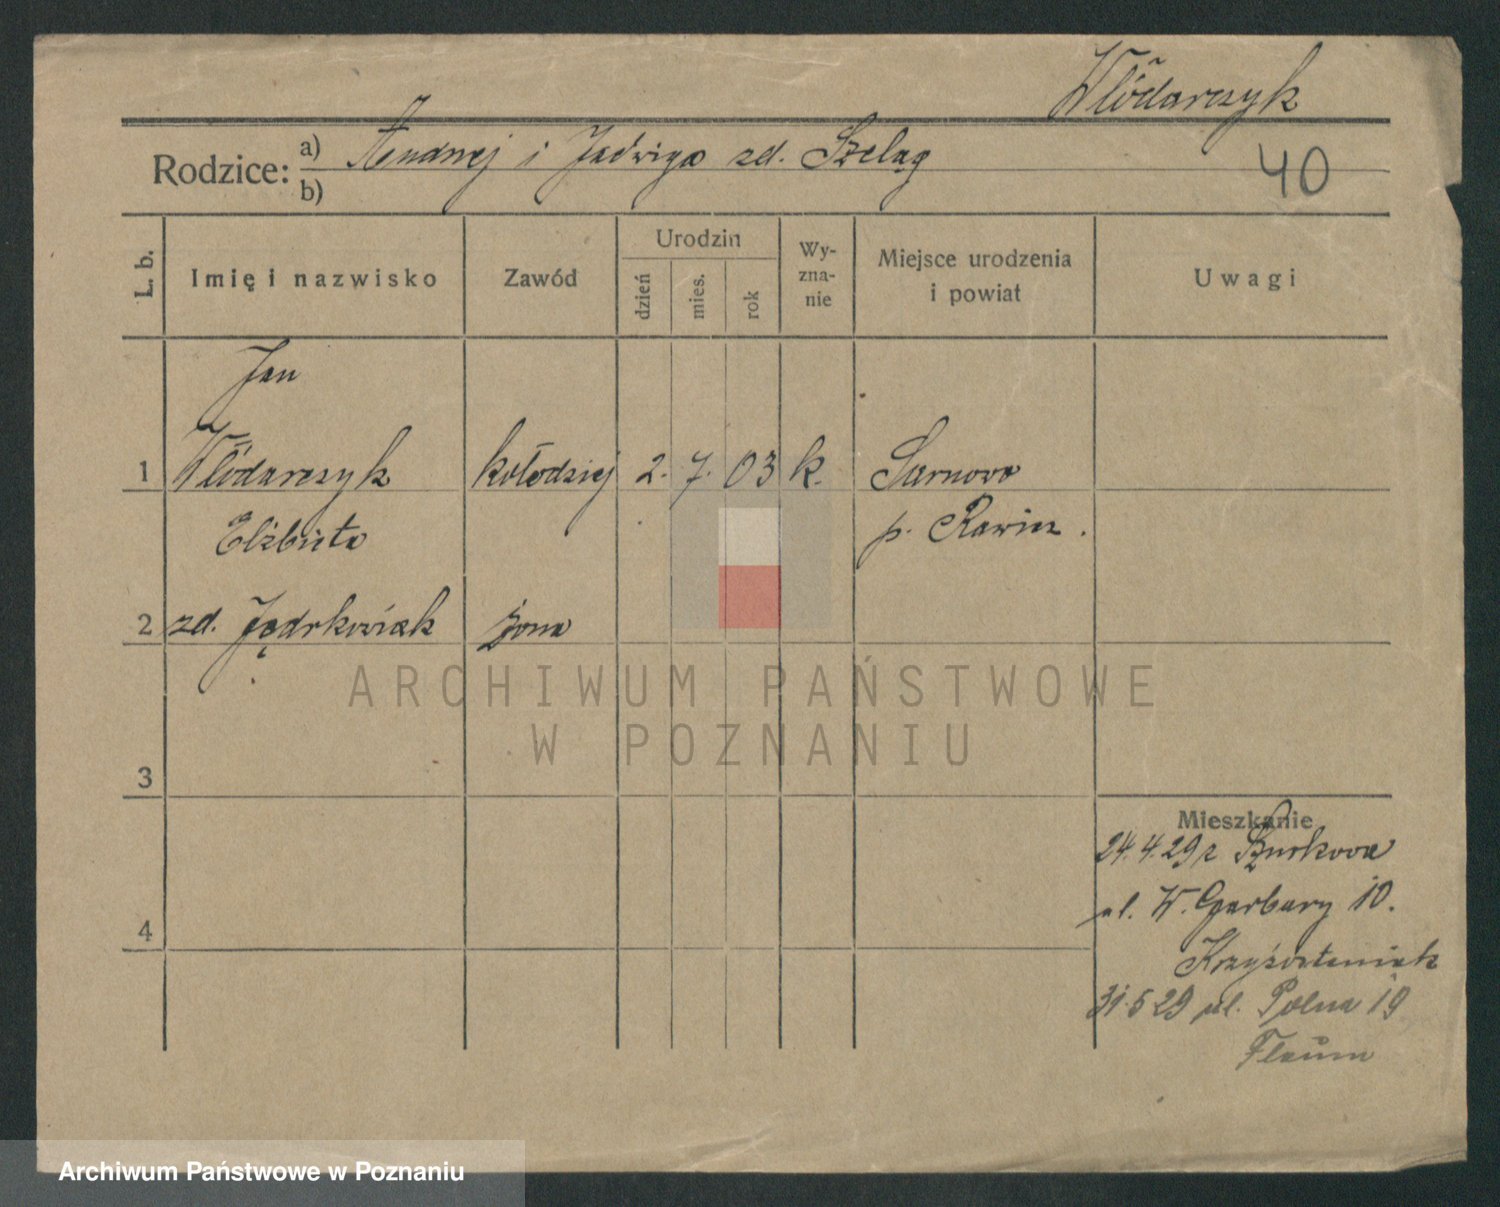 Włódarczyk
Rodzice: a) Andrzej i Jadwiga zd. Szeląg
b)
40
L. b.
Imię i nazwisko
Zawód
Urodzin
dzień
mies.
rok
Wy-
zna-
nie
Miejsce urodzenia
i powiat
Uwagi
Jan
1 Włódarczyk kołodziej 2. 7. 03 k. Sarnowa
Elżbieta p. Rawicz.
2 zd. Jędrkowiak żona
ARCHIWUM PAŃSTWOWE
W POZNANIU
3
Mieszkanie
24.4.29 z Szurkowa
ul. W. Garbary 10.
4
31.5 29 ul. Polna 19
Archiwum Państwowe w Poznaniu